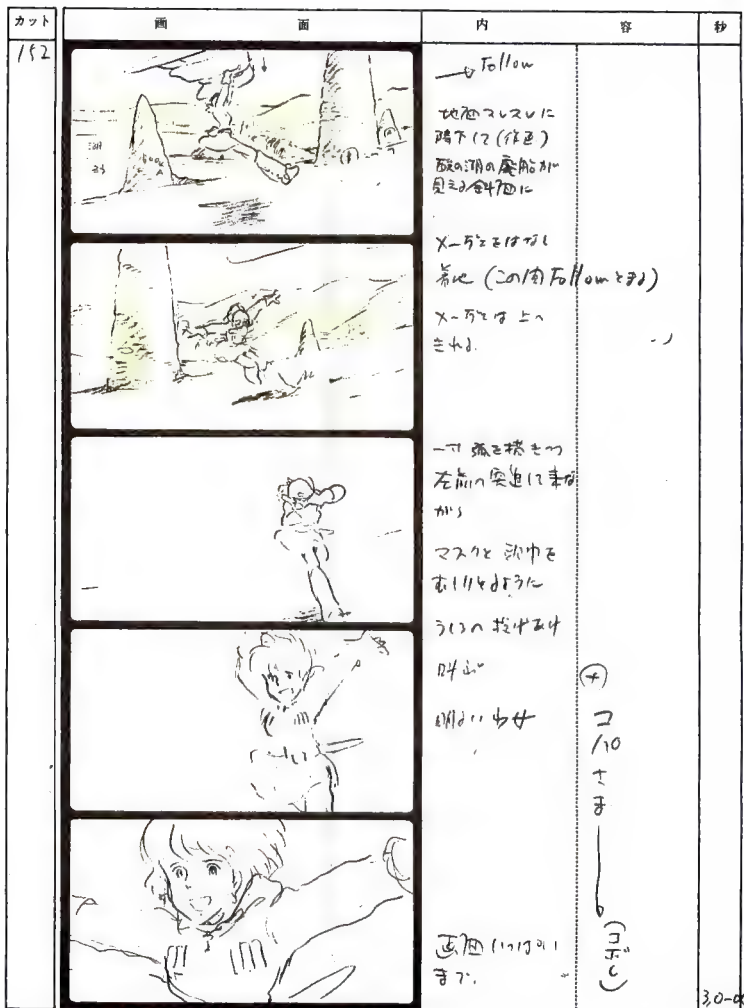 カット
画
面
内
容
秒
152
Follow
地面スレスレに
降下して(作画)
酸の湖の廃船が
見える斜面に
メーヴェをはなし
着地(この間Followとまる)
メーヴェは上へ
きれる.
一寸弧を描きつつ
左前へ突進して来な
がら
マスクと頭巾を
むしりとるように
うしろへ投げあげ
叫ぶ
明るい少女
画面いっぱい
まで.
ナ
ユパさま——
(コボし)